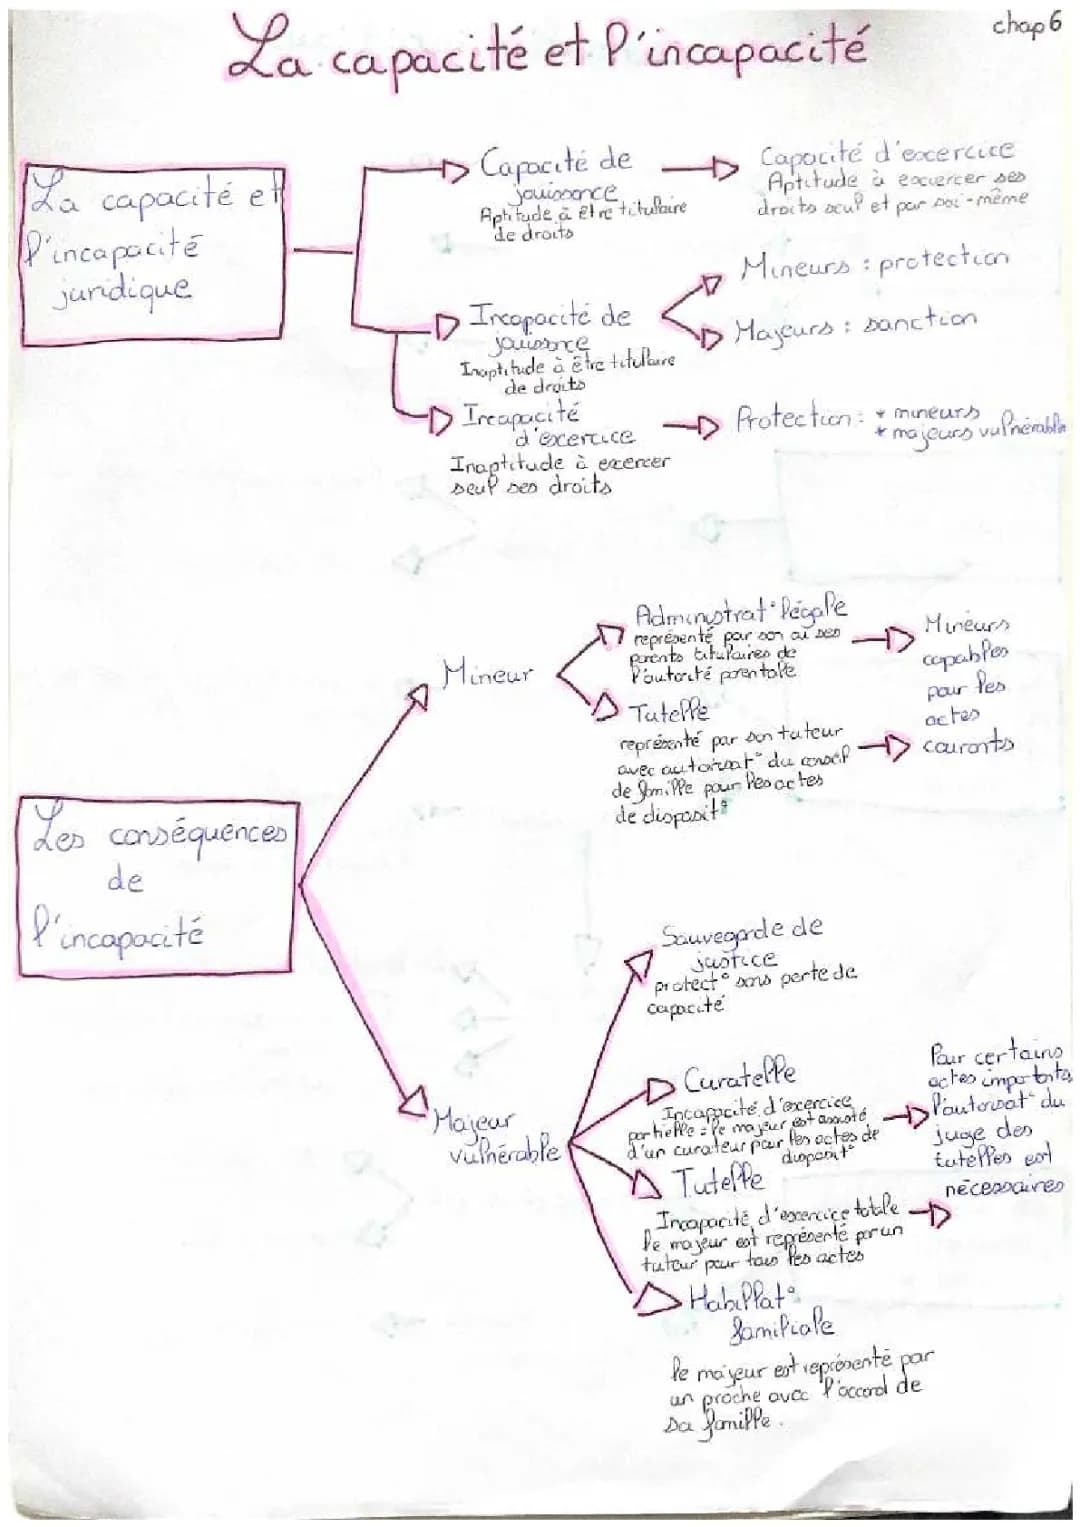 chap 6
La capacité et l'incapacité
La capacité et
l'incapacité
juridique
Capacité de
jouissance
Aptitude à être titulaire
de droits
Capacité d'exercice
Aptitude à exercer ses
droits seul et par soi-même
Incapacité de
jouissance
Inaptitude à être titulaire
de droits
Mineurs : protection
Majeurs : sanction
Incapacité
d'exercice
Inaptitude à exercer
seul ses droits
Protection : * mineurs
* majeurs vulnérable
Les conséquences
de
l'incapacité
Mineur
Administrat° légale
représenté par son ou ses
parents titulaires de
l'autorité parentale
Tutelle
représenté par son tuteur
avec autorisat° du conseil
de famille pour les actes
de disposit°
Mineurs
capables
pour les
actes
courants
Majeur
vulnérable
Sauvegarde de
justice
protect° sans perte de
capacité
Curatelle
Incapacité d'exercice
partielle = le majeur est assisté
d'un curateur pour les actes de
disposit°
Tutelle
Incapacité d'exercice totale
le majeur est représenté par un
tuteur pour tous les actes
Pour certains
actes importants
l'autorisat° du
juge des
tutelles est
nécessaires
Habilitat°
familiale
le majeur est représenté par
un proche avec l'accord de
sa famille.